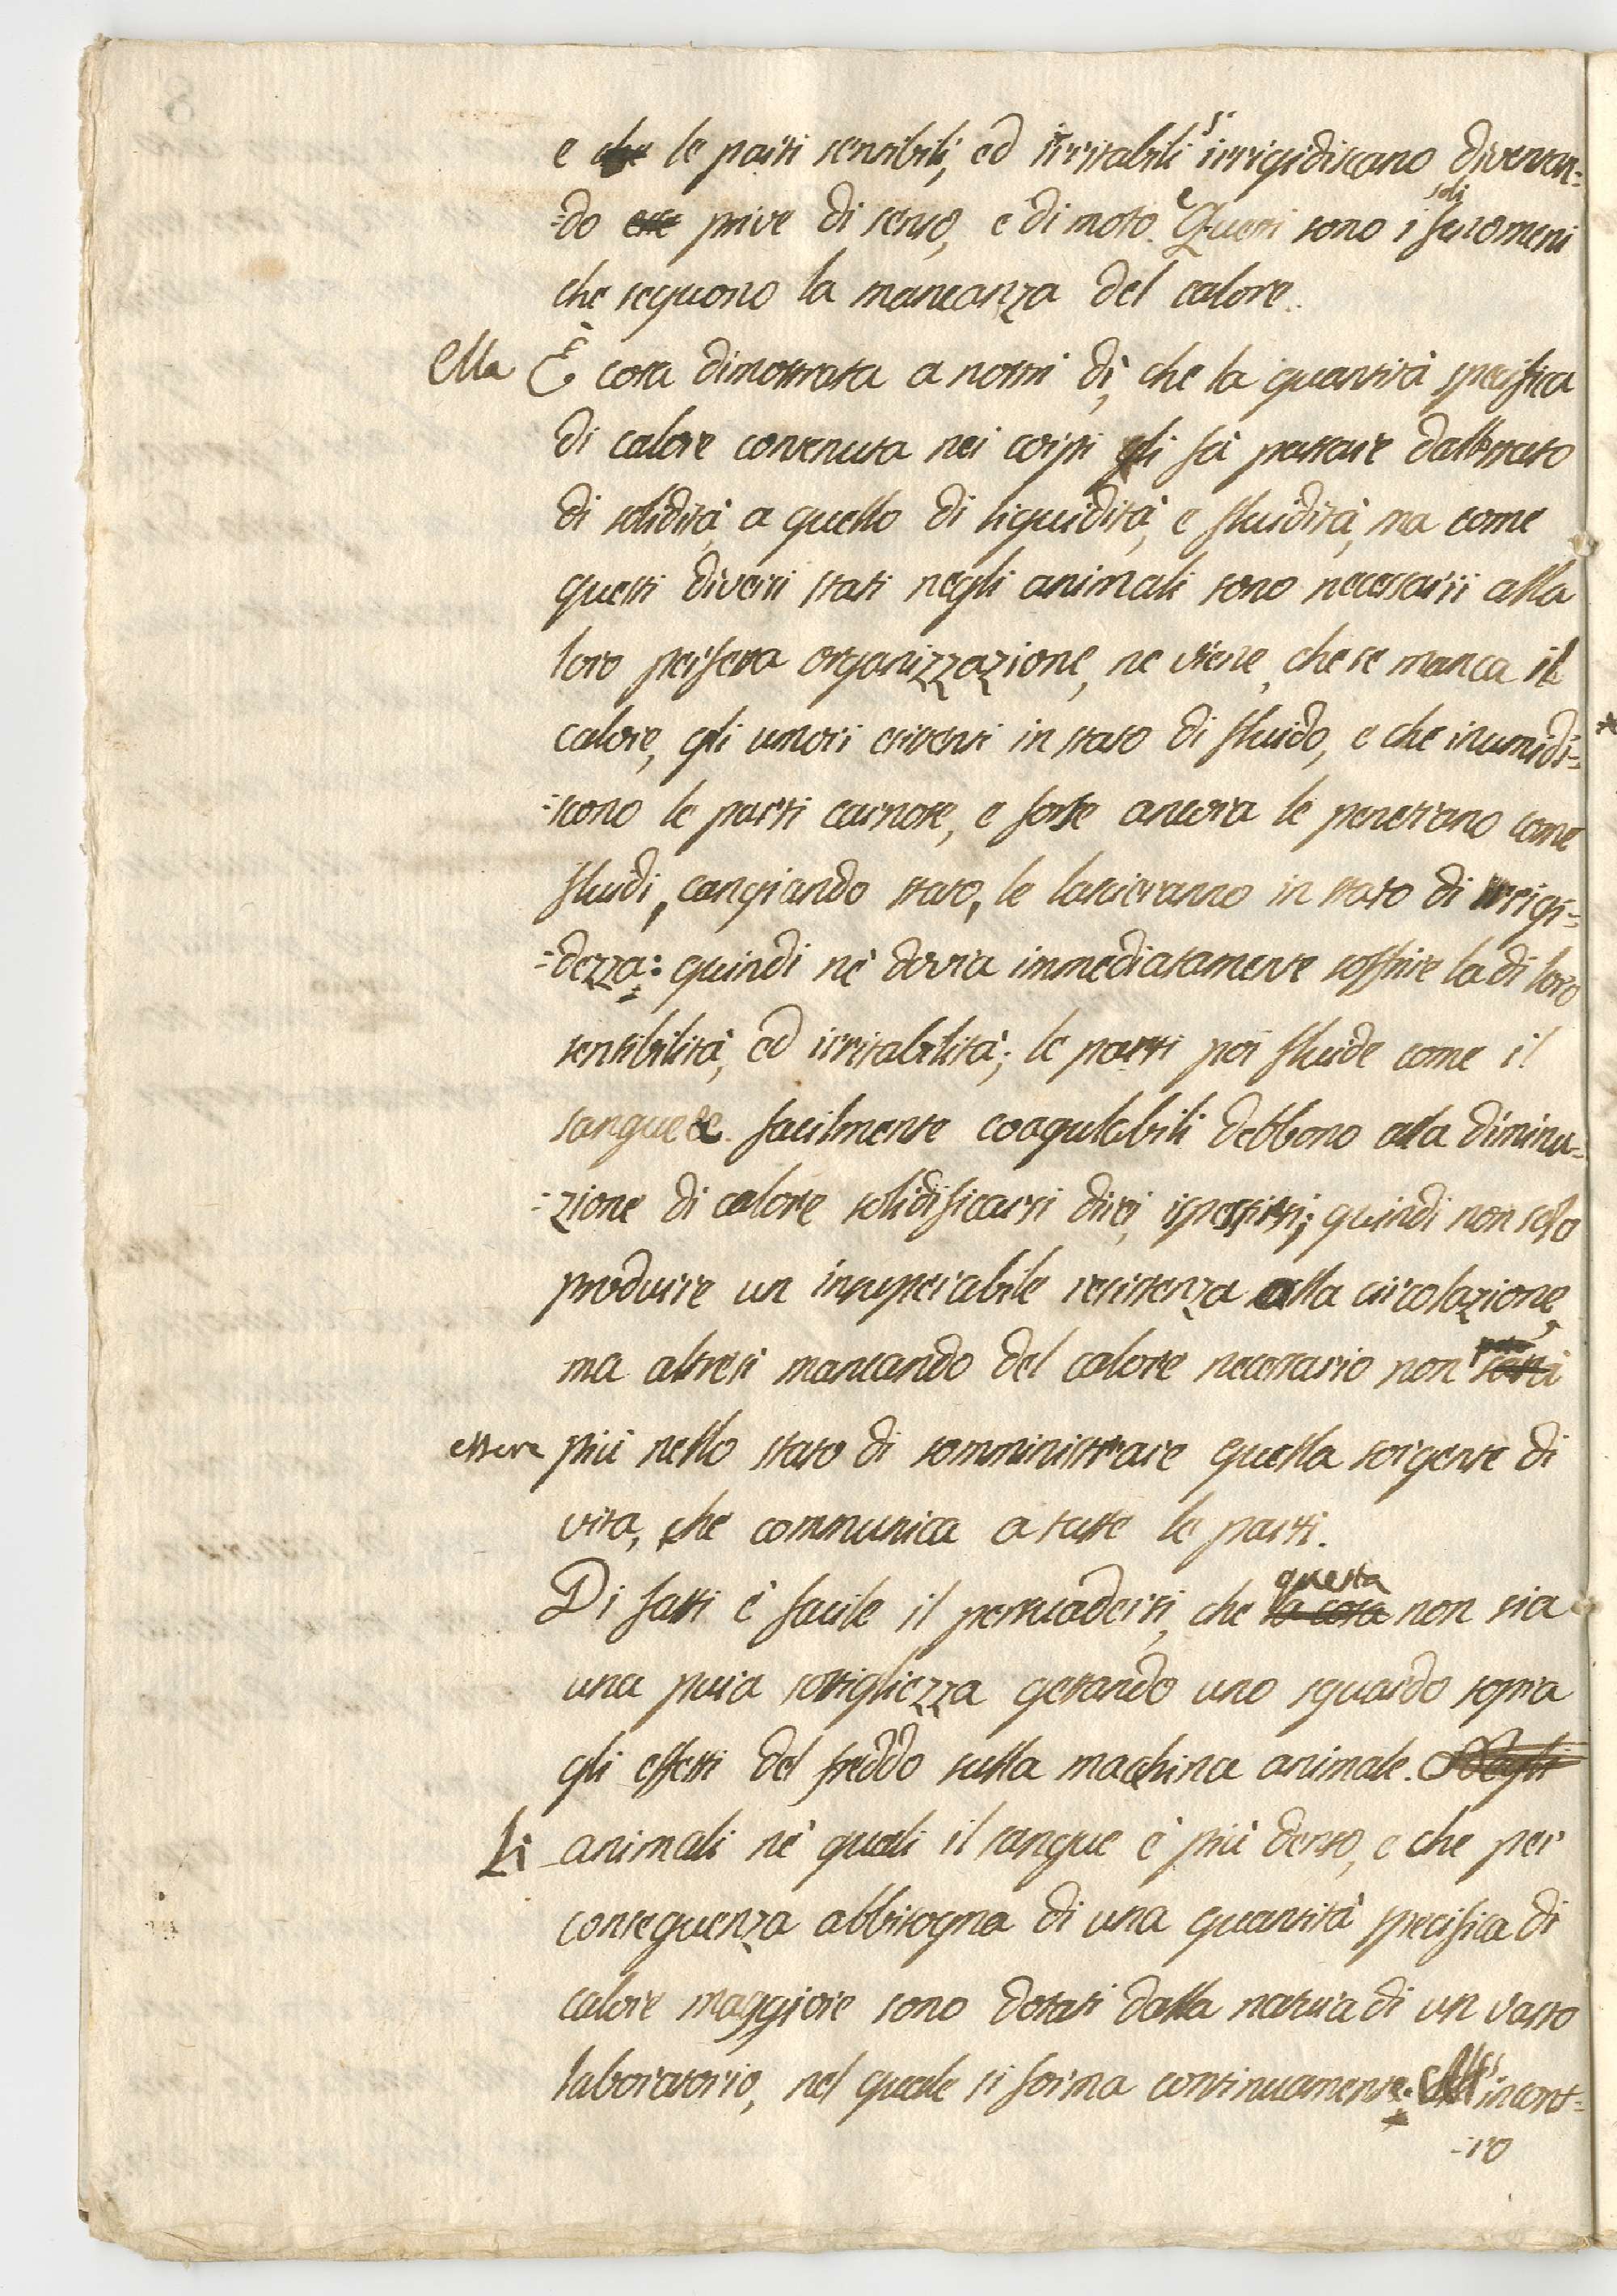 e che le parti sensibili, ed irritabili si irrigidiscano diven-
-do esse prive di senso, e di moto. E Questi sono i soli fenomeni
che seguono la mancanza del calore.
Ella È cosa dimostrata a nostri dì, che la quantità specifica
di calore contenuta nei corpi gli fà passare dallo stato
di solidità, a quello di liquidità, e fluidità, ma come
questi diversi stati negli animali sono necessarii alla
loro perfetta organizzazione, ne viene, che se manca il
calore, gli umori esistenti in stato di fluido, e che inumidi- *
-scono le parti carnose, e forse ancora le penetrano come
fluidi, cangiando stato, le lascieranno in stato di rrigi-
-dezza: quindi nè dovra immediatamente soffrire la di loro
sensibilità, ed irritabilità; le parti poi fluide come il
sangue &. facilmente coagulabili debbono alla diminu-
-zione di calore solidificarsi direi, ispessirsi; quindi non solo
produrre un insuperabile resistenza alla circolazione,
ma altresi mancando del calore necessario non
essere più nello stato di somministrare quella sorgente di
vita, che communica a tutte le parti.
Di fatti è facile il persuadersi, che la cosa questa non sia
una pura sottigliezza gettando uno sguardo sopra
gli effetti del freddo sulla machina animale. Negli
Li animali nè quali il sangue è più denso, e che per
conseguenza abbisogna di una quantità specifica di
calore maggiore sono dotati dalla natura di un vasto
laboratorio, nel quale si forma continuamente. All'incont-
-ro